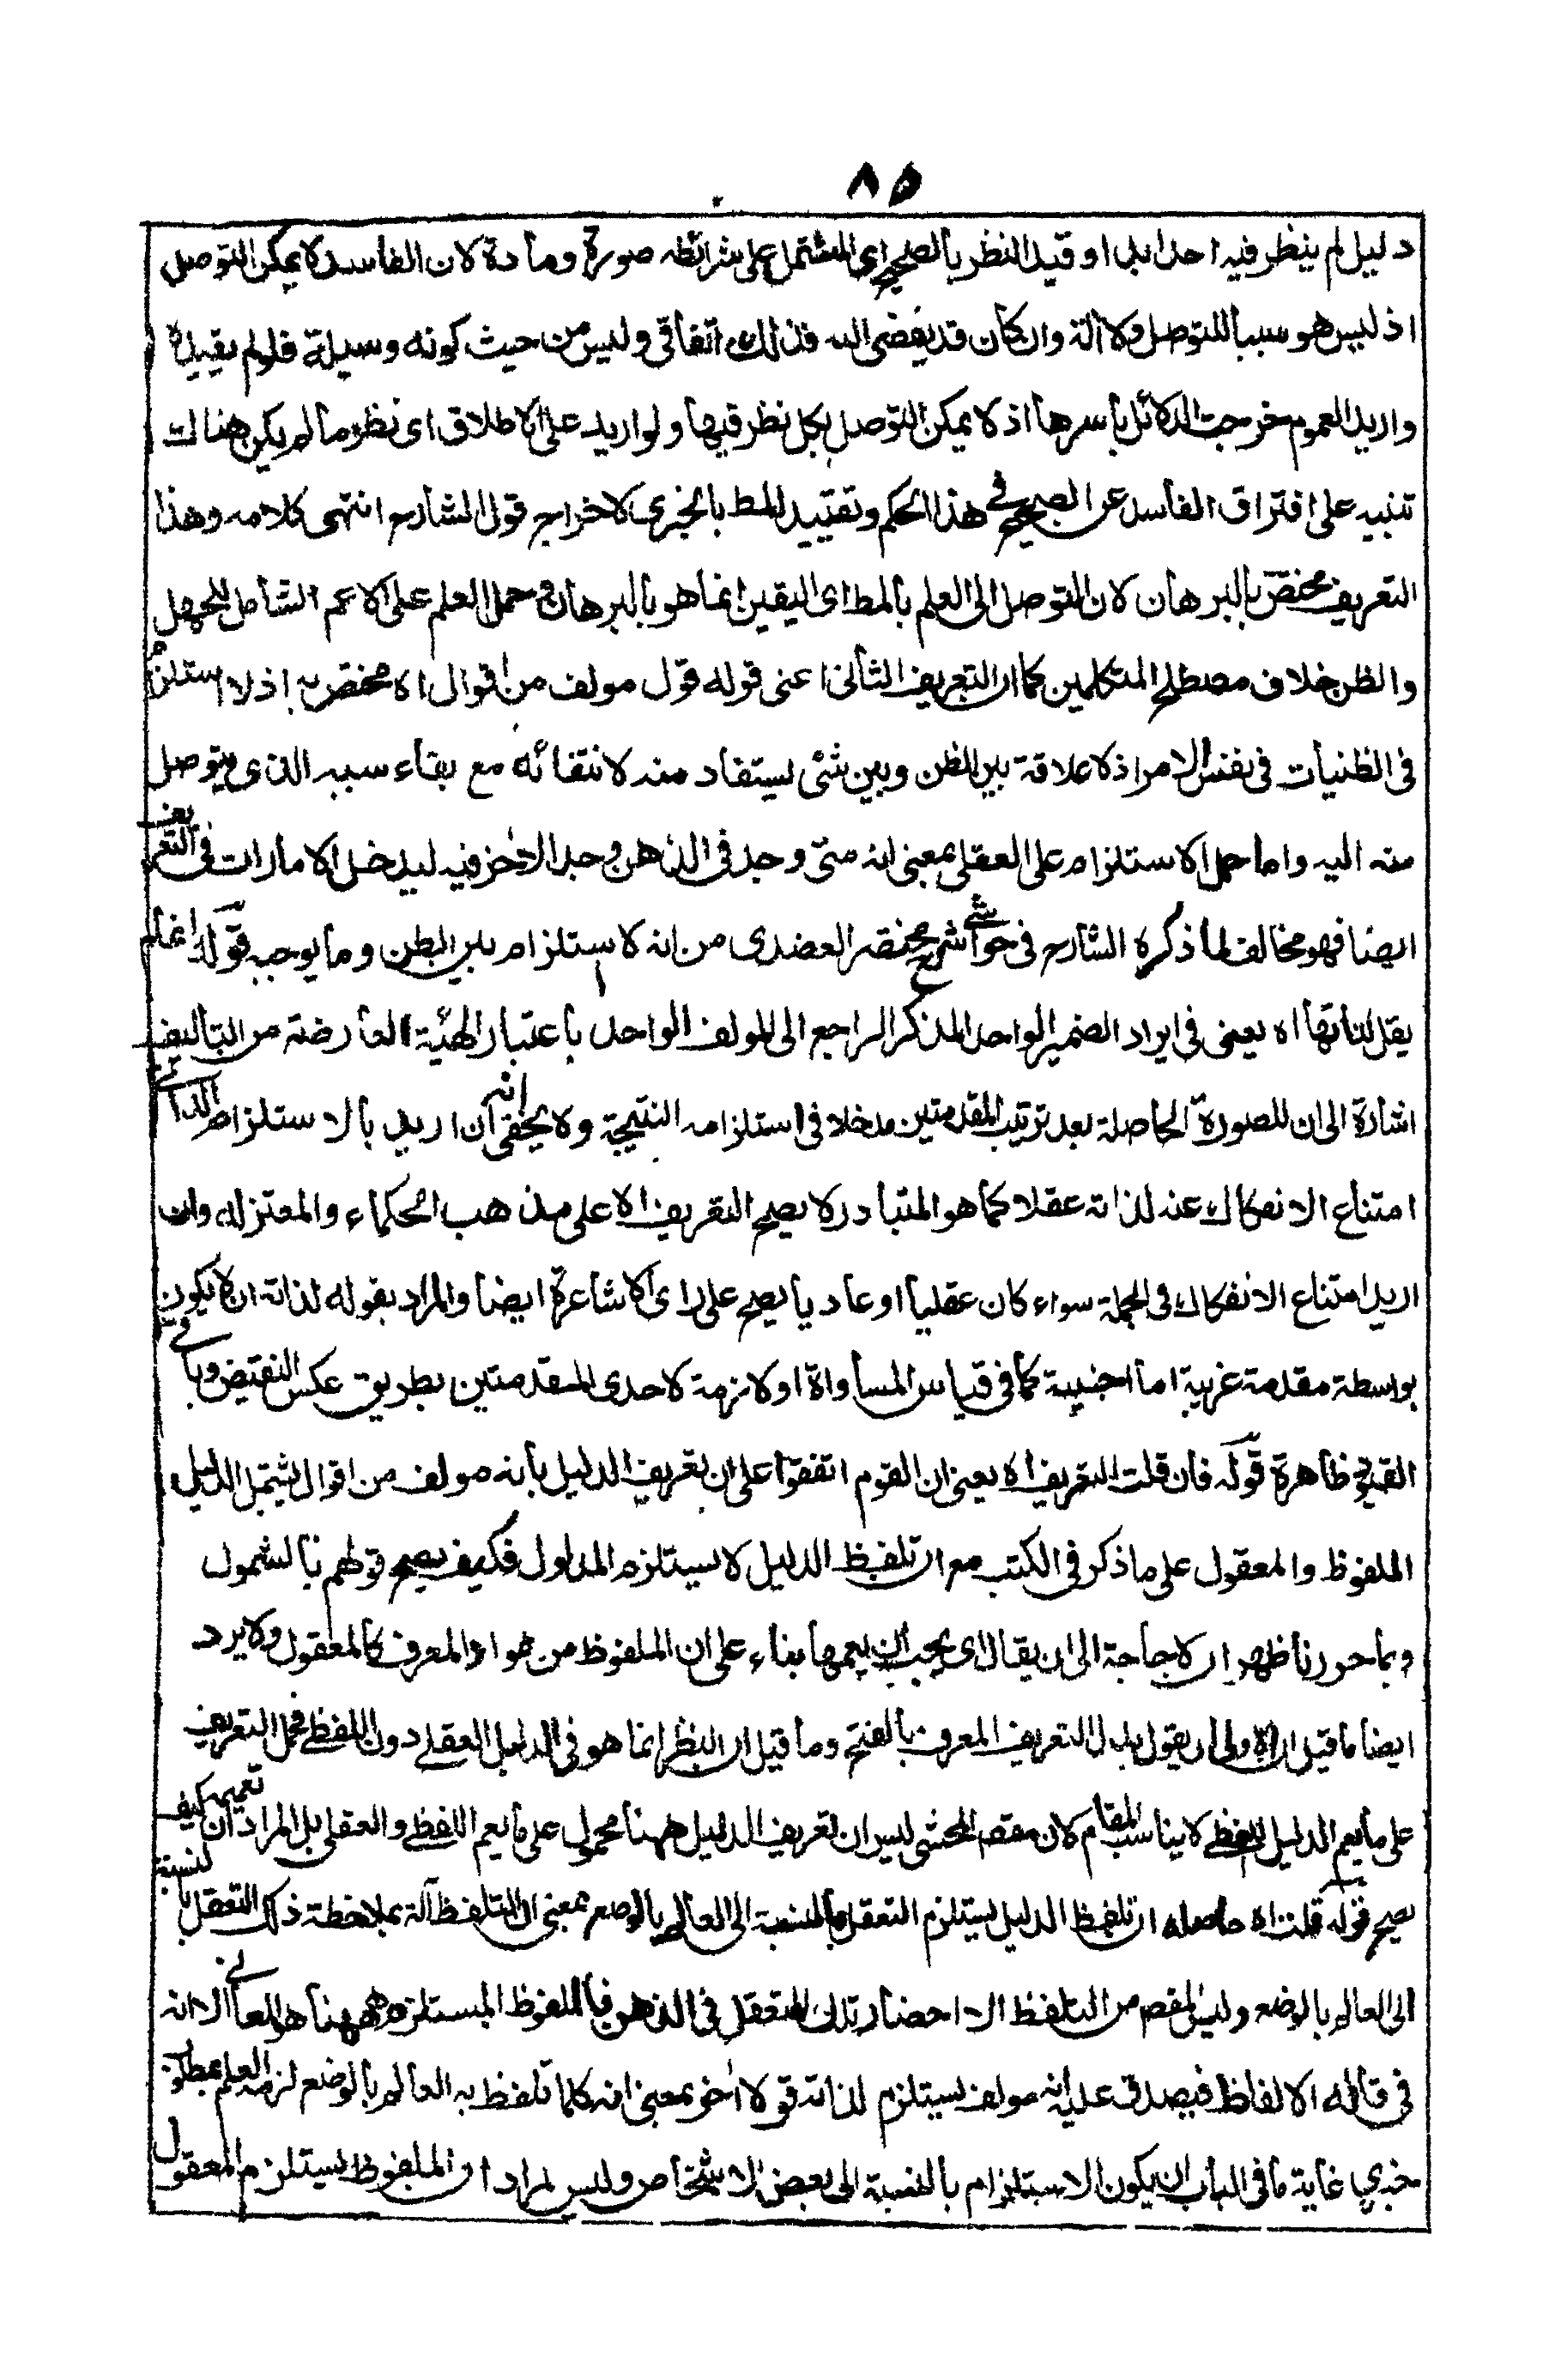 ٨٥
دليل لم ينظر فيه احد ابدا وقيد النظر بالصحيح اى المشتمل على شرائطه صورة ومادة لان الفاسد لا يمكن التوصل
اذ ليس هو سببا للتوصل ولا آلة وان كان قد يفضى اليه فذلك اتفاقى وليس من حيث كونه وسيلة فلو لم يقيد ه
واريد العموم خرجت الدلائل باسرها اذ لا يمكن التوصل بكل نظر فيها ولو اريد على الاطلاق اى نظر ما لم يكن هناك
تنبيه على افتراق الفاسد عن الصحيح فى هذا الحكم وتقييد المط بالخبرى لاخراج قول الشارح انتهى كلامه وهذا
التعريف مختص بالبرهان لان التوصل الى العلم بالمط اى اليقين انما هو بالبرهان وحمل العلم على الاعم الشامل للجهل
والظن خلاف مصطلح المتكلمين كما ان التعريف الثانى اعنى قوله قول مولف من اقوال اه مختص به اذ لا استلزم
فى الظنيات فى نفس الامر اذ لا علاقة بين الظن وبين شئ يستفاد منه لانتفائه مع بقاء سببه الذى يتوصل
منه اليه واما حمل الاستلزام على العقلى بمعنى انه متى وجد فى الذهن وجد الآخر فيه ليدخل الامارات فى التعريف
ايضا فهو مخالف لما ذكره الشارح فى حواشى شرح مختصر العضدى من انه لا استلزام بين الظن وما يوجبه قوله انما لم
يقل لذاتها اه يعنى فى ايراد الضمير الواحد المذكر الراجع الى المولف الواحد باعتبار الهئية العارضة من التاليف
اشارة الى ان للصورة الحاصلة بعد ترتيب المقدمتين مدخلا فى استلزامه النتيجة ولا يخفى انه ان اريد بالاستلزام الذاتى
امتناع الانفكاك عنه لذاته عقلا كما هو المتبادر لا يصح التعريف الا على مذهب الحكماء والمعتزله وان
اريد امتناع الانفكاك فى الجملة سواء كان عقليا او عاديا يصح على راى الاشاعرة ايضا والمراد بقوله لذاته ان لا يكون
بواسطة مقدمة غريبة اما اجنبية كما فى قياس المساواة او لازمة لاحدى المقدمتين بطريق عكس النقيض وباقى
القيود ظاهرة قوله فان قلت التعريف اه يعنى ان القوم اتفقوا على ان تعريف الدليل بانه مولف من اقوال يشتمل الدليل
الملفوظ والمعقول على ما ذكر فى الكتب مع ان تلفظ الدليل لا يستلزم المدلول فكيف يصح قولهم بالشمول
وبما حررنا ظهر ان لا حاجة الى ان يقال اى يجب ان يعمها بناء على ان الملفوظ من افراد المعرف كالمعقول ولا يرد
ايضا ما قيل ان الاولى ان يقول بدل التعريف المعرف بالفتح وما قيل ان النظر انما هو فى الدليل العقلے دون اللفظے فحمل التعريف
على ما يعم الدليل اللفظے لا يناسب المقام لان مقص المحشى ليس ان تعريف الدليل ههنا محمول على ما يعم اللفظے والعقلى بل المراد ان تعميمه كيف
يصح قوله قلت اه حاصله ان تلفظ الدليل يستلزم التعقل بالنسبة الى العالم بالوضع بمعنى ان التلفظ آلة بملاحظة ذلك التعقل بالنسبة
الى العالم بالوضع وليس المقص من التلفظ الا احضار تلك المتعقل فى الذهن فالملفوظ المستلزم ههنا هو المعانى الا انه
فى قالب الالفاظ فيصدق عليه انه مولف يستلزم لذاته قولا آخر بمعنى انه كلما تلفظ به العالم بالوضع لزمه العلم بمطلوب
خبري غاية ما فى الباب ان يكون الاستلزام بالنسبة الى بعض الاشخاص وليس المراد ان الملفوظ يستلزم المعقول